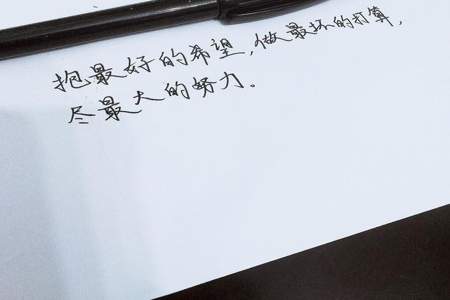 抱最好的希望,做最坏的打算,
尽最大的努力。